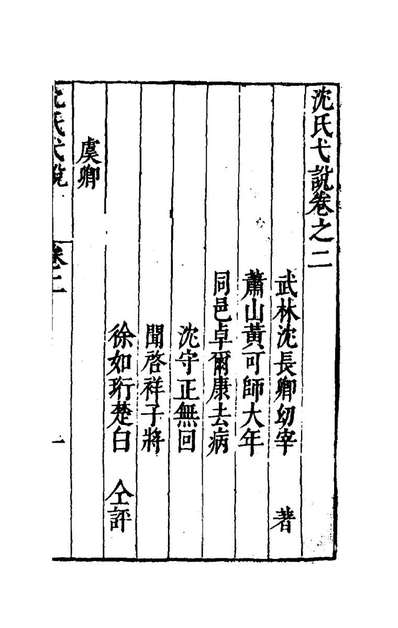 沈氏弋說卷之二
武林沈長卿幼宰 著
蕭山黃可師大年
同邑卓爾康去病
沈守正無回
聞啓祥子將
徐如珩楚白 仝評
虞卿
沈氏弋說 卷二 一